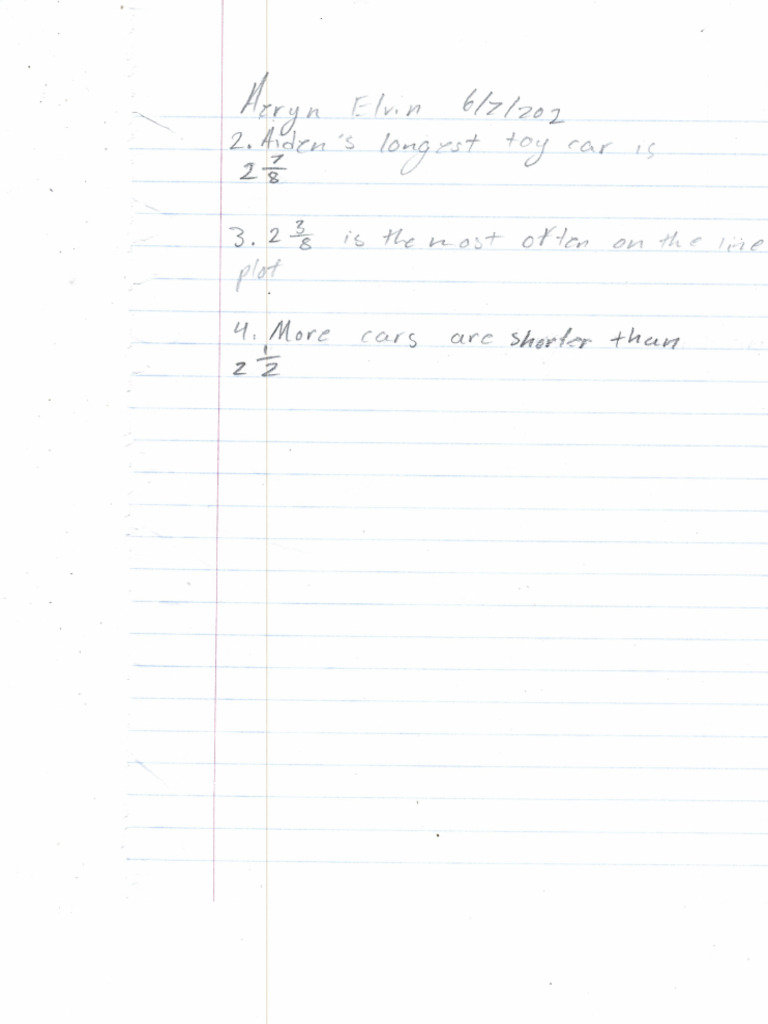 Aeryn Elvin 6/7/202
2. Aiden's longest toy car is
2 7/8
3. 2 3/8 is the most often on the line
plot
4. More cars are shorter than
2 1/2